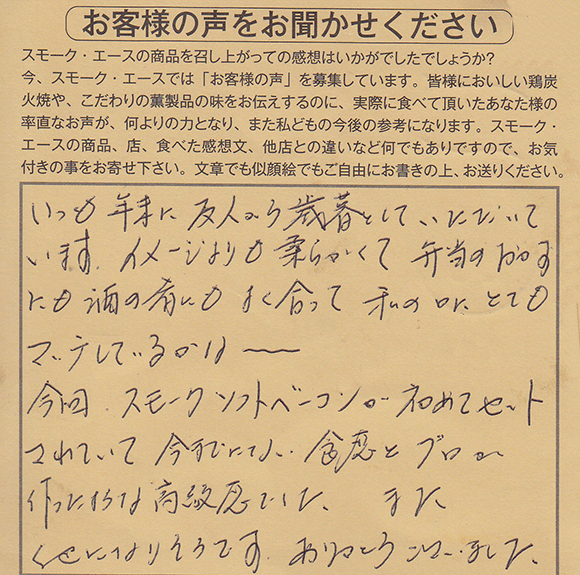 お客様の声をお聞かせください
スモーク・エースの商品を召し上がっての感想はいかがでしたでしょうか?
今、スモーク・エースでは「お客様の声」を募集しています。皆様においしい鶏炭
火焼や、こだわりの薫製品の味をお伝えするのに、実際に食べて頂いたあなた様の
率直なお声が、何よりの力となり、また私どもの今後の参考になります。スモーク・
エースの商品、店、食べた感想文、他店との違いなど何でもありですので、お気
付きの事をお寄せ下さい。文章でも似顔絵でもご自由にお書きの上、お送りください。
いつも 年末に 友人から 歳暮として いただいて
います。イメージよりも 柔らかくて 弁当のおかず
にも 酒の肴にも よく合って 私の口に とても
マッチしているかな〜
今回、スモークソフトベーコンが 初めてセット
されていて 今までにない 食感と プロが
作ったような 高級感でした。 また
くせになりそうです。ありがとうございました。